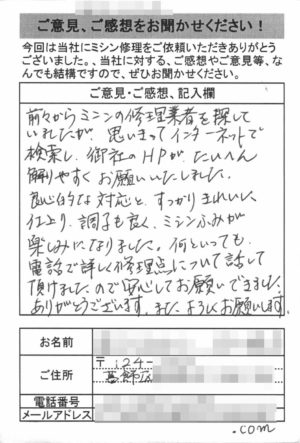 ご意見、ご感想をお聞かせください！
今回は当社にミシン修理をご依頼いただきありがとう
ございました。、当社に対する、ご感想やご意見等、な
んでも結構ですので、ぜひお聞かせください。
ご意見・ご感想、記入欄
前々からミシンの修理業者を探して
いましたが、思いきってインターネットで
検索し、御社のHPがたいへん
解りやすくお願いいたしました。
良心的な対応と、すっかりきれいに
仕上り、調子も良く、ミシンふみが
楽しみになりました。何といっても、
電話で詳しく修理点について話して
頂けましたので安心してお願いできました。
ありがとうございます。また、よろしくお願いします。
お名前
ご住所
〒124-
葛飾区
電話番号
メールアドレス
.com